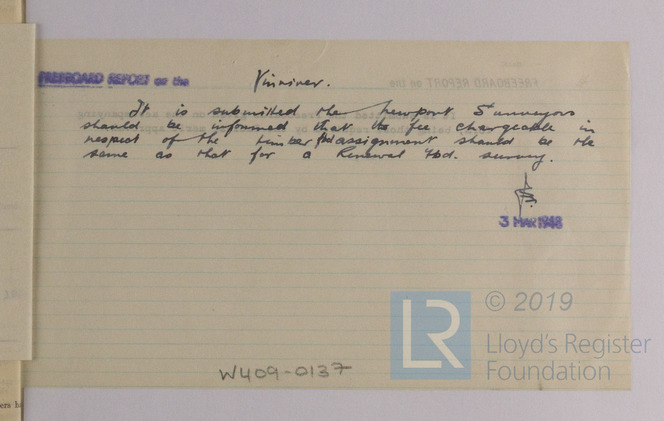 FREEBOARD REPORT on the Vinriver.
It is submitted the Newport Surveyors
should be informed that the fee chargeable in
respect of the timber fbd assignment should be the
same as that for a Renewal fbd. survey.
3 MAR 1948
LR © 2019
Lloyd's Register
Foundation
W409-0137